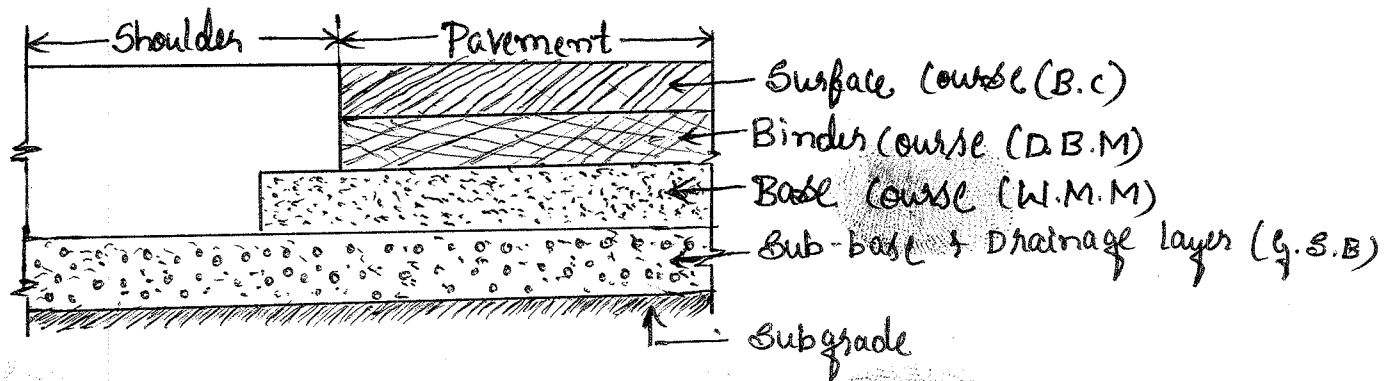 Shoulder Pavement
Surface Course (B.C)
Binder Course (D.B.M)
Base Course (W.M.M)
Sub-base & Drainage layer (G.S.B)
Subgrade